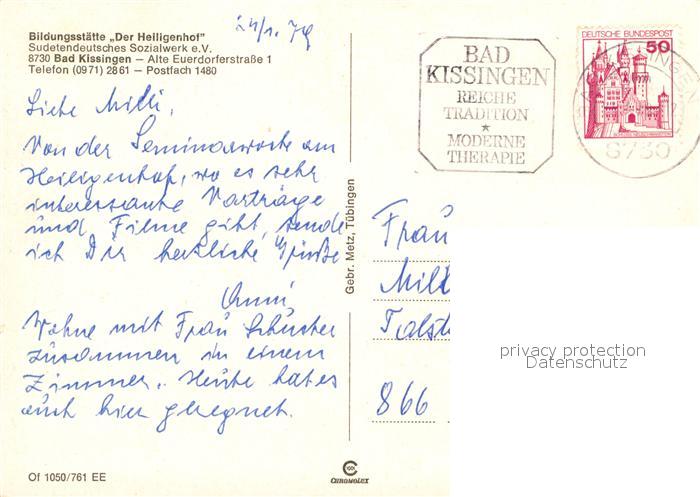 Bildungsstätte „Der Heiligenhof"
Sudetendeutsches Sozialwerk e.V.
8730 Bad Kissingen – Alte Euerdorferstraße 1
Telefon (0971) 28 61 – Postfach 1480
24/1. 79
Liebe Milli,
Von der Seminarwoche am
Heiligenhof, wo es sehr
interessante Vorträge
und Filme gibt, sende
ich Dir herzliche Grüße
Anni
Wohne mit Frau Schuster
zusammen in einem
Zimmer. Heute hat es
auch hier geregnet.
Of 1050/761 EE
Gebr. Metz, Tübingen
CHROMOLUX
BAD
KISSINGEN
REICHE
TRADITION
★
MODERNE
THERAPIE
DEUTSCHE BUNDESPOST
50
8730
Frau
Milli
Talst
866
privacy protection
Datenschutz